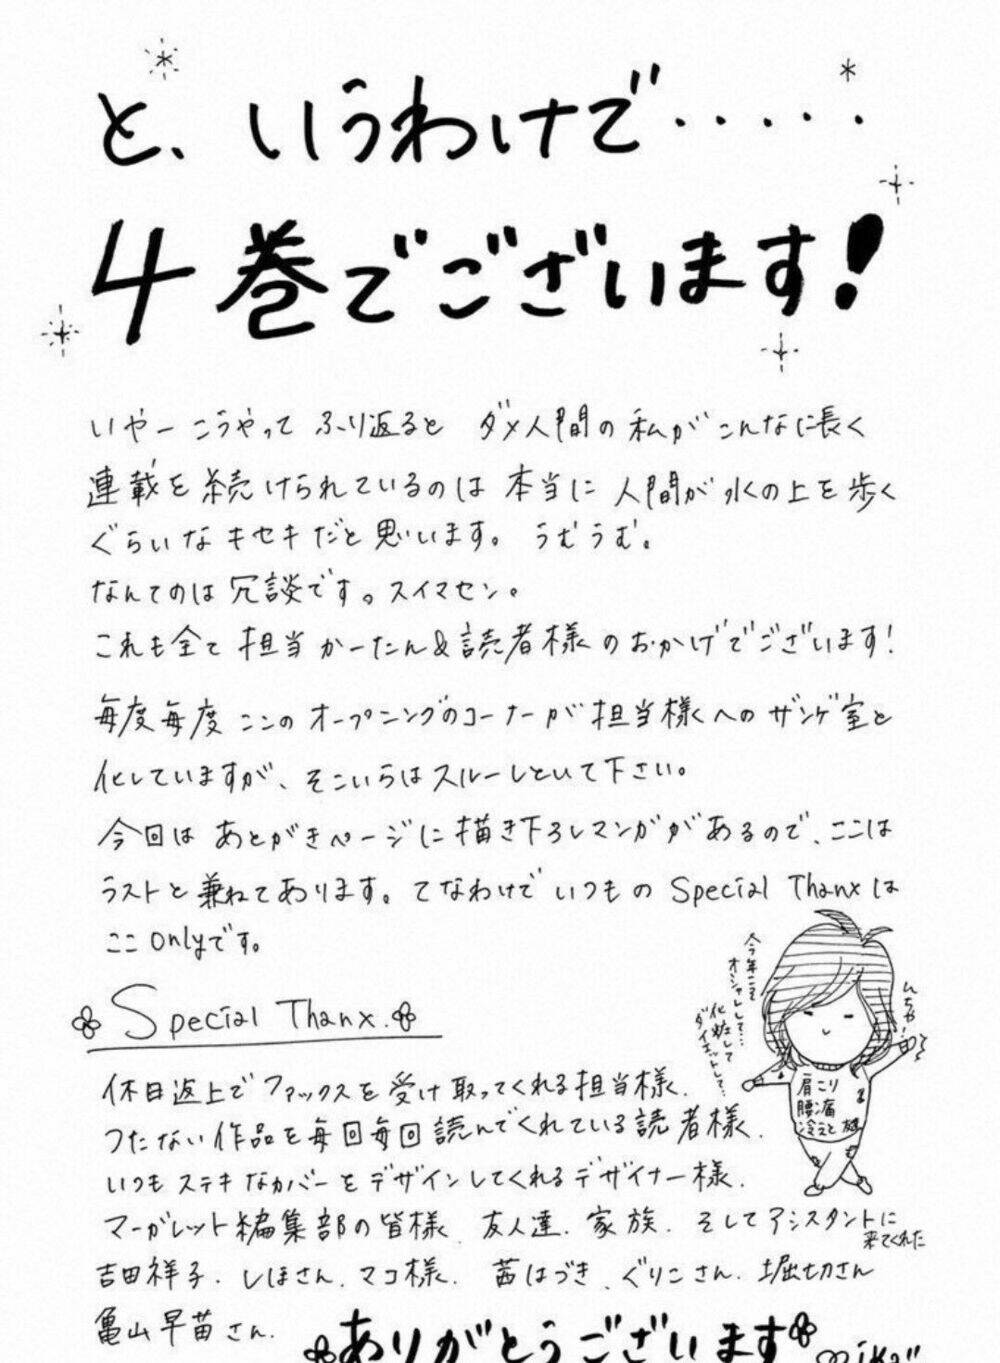 と、いうわけで・・・・・
4巻でございます！
いやー こうやって ふり返ると ダメ人間の私がこんなに長く
連載を続けられているのは本当に人間が水の上を歩く
ぐらいなキセキだと思います。うむうむ。
なんてのは冗談です。スイマセン。
これも全て担当かーたん&読者様のおかげでございます！
毎度毎度ここのオープニングのコーナーが担当様へのザンゲ室と
化していますが、そこいらはスルーしといて下さい。
今回はあとがきページに描き下ろしマンガがあるので、ここは
ラストと兼ねてあります。てなわけでいつものSpecial Thanxは
ここonlyです。
今年こそ
オシャレして…
化粧して
ダイエットして…
んちゃ!
肩こり
腰痛
冷えと
Special Thanx.
休日返上でファックスを受け取ってくれる担当様.
つたない作品を毎回毎回読んでくれている読者様.
いつもステキなカバーをデザインしてくれるデザイナー様.
マーガレット編集部の皆様. 友人達. 家族. そしてアシスタントに
来てくれた
吉田祥子. しほさん. マコ様. 茜はづき. ぐりこさん. 堀切さん
亀山早苗さん.
ありがとうございます